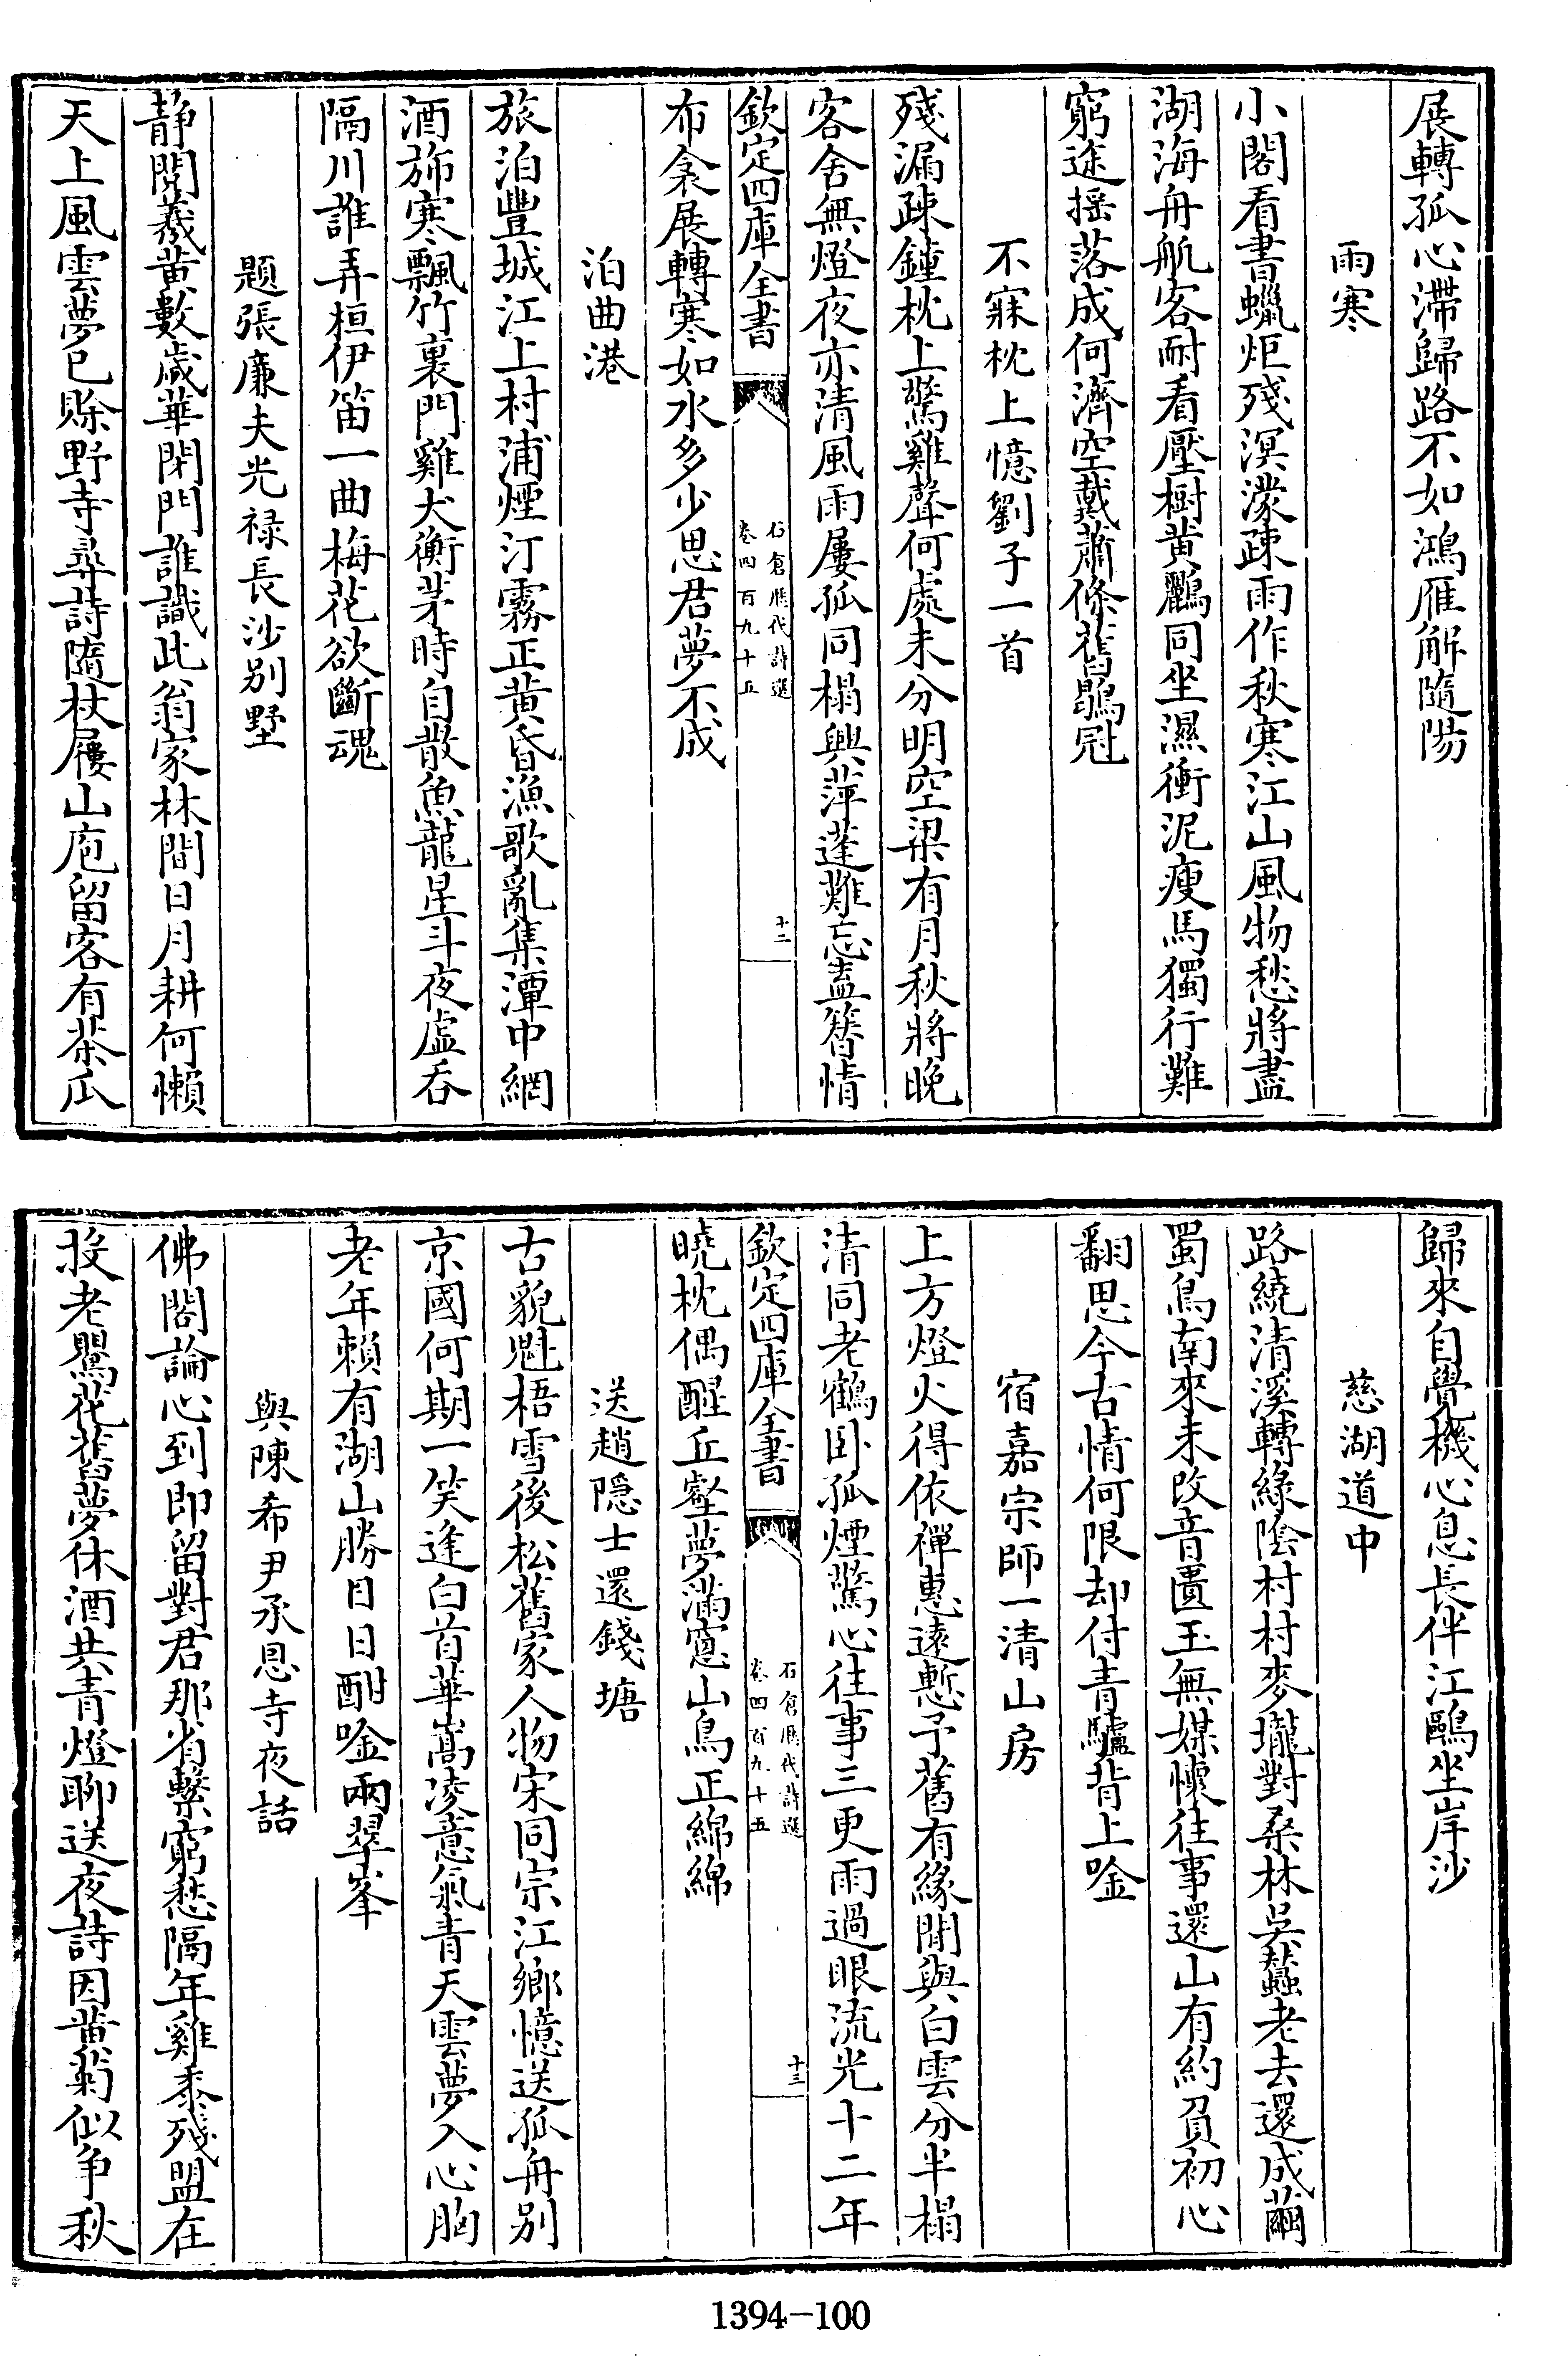 展轉孤心滯歸路不如鴻雁解隨陽
雨寒
小閣看書蠟炬殘溟濛疎雨作秋寒江山風物愁將盡
湖海舟航客耐看壓樹黄鸝同坐濕衝泥瘦馬獨行難
窮途揺落成何濟空戴蕭條舊鶡冠
不寐枕上憶劉子一首
殘漏疎鐘枕上驚雞聲何處未分明空梁有月秋將晚
客舍無燈夜亦清風雨屢孤同榻興萍蓬難忘盍簪情
欽定四庫全書
石倉歴代詩選
卷四百九十五
十二
布衾展轉寒如水多少思君夢不成
泊曲港
旅泊豐城江上村浦煙汀霧正黄昏漁歌亂集潭中網
酒斾寒飄竹裏門雞犬衡茅時自散魚龍星斗夜虛吞
隔川誰弄桓伊笛一曲梅花欲斷魂
題張廉夫光禄長沙别墅
静閲羲黄數歲華閉門誰識此翁家林間日月耕何懶
天上風雲夢已賖野寺尋詩隨杖屨山庖留客有茶瓜
歸來自覺機心息長伴江鷗坐岸沙
慈湖道中
路繞清溪轉綠陰村村麥壠對桑林吳蠶老去還成繭
蜀鳥南來未改音匵玉無媒懐往事還山有約負初心
翻思今古情何限却付青驢背上唫
宿嘉宗師一清山房
上方燈火得依禪惠遠慙予舊有緣閒與白雲分半榻
清同老鶴卧孤煙驚心往事三更雨過眼流光十二年
欽定四庫全書
石倉歴代詩選
卷四百九十五
十三
曉枕偶醒丘壑夢滿窻山鳥正綿綿
送趙隠士還錢塘
古貌魁梧雪後松舊家人物宋同宗江鄉憶送孤舟别
京國何期一笑逢白首華嵩凌意氣青天雲夢入心胸
老年頼有湖山勝日日酣唫兩翠峯
與陳希尹承恩寺夜話
佛閣論心到即留對君那省繫窮愁隔年雞黍殘盟在
投老鸎花舊夢休酒共青燈聊送夜詩因黄菊似争秋
1394-100